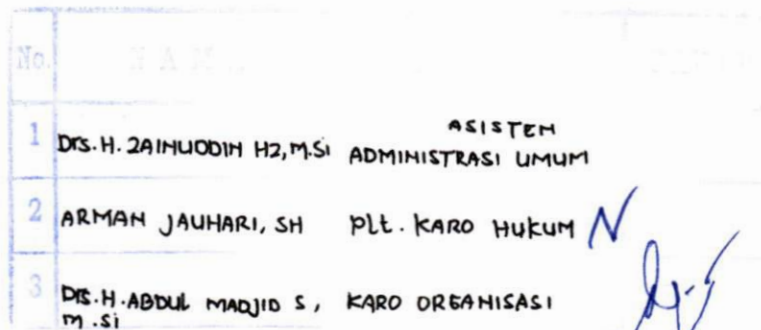 No. NAMA
1 Drs. H. ZAINUDDIN HZ, M.Si ASISTEN ADMINISTRASI UMUM
2 ARMAN JAUHARI, SH Plt. KARO HUKUM
3 DRS. H. ABDUL MADJID S, M.Si KARO ORGANISASI